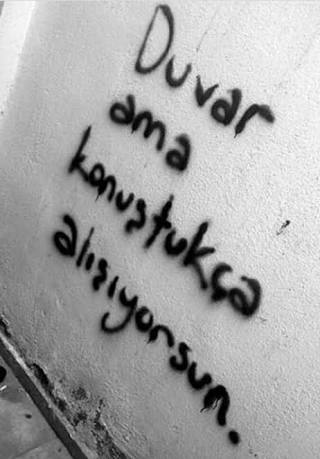 Duvar
ama
konuştukça
alışıyorsun.